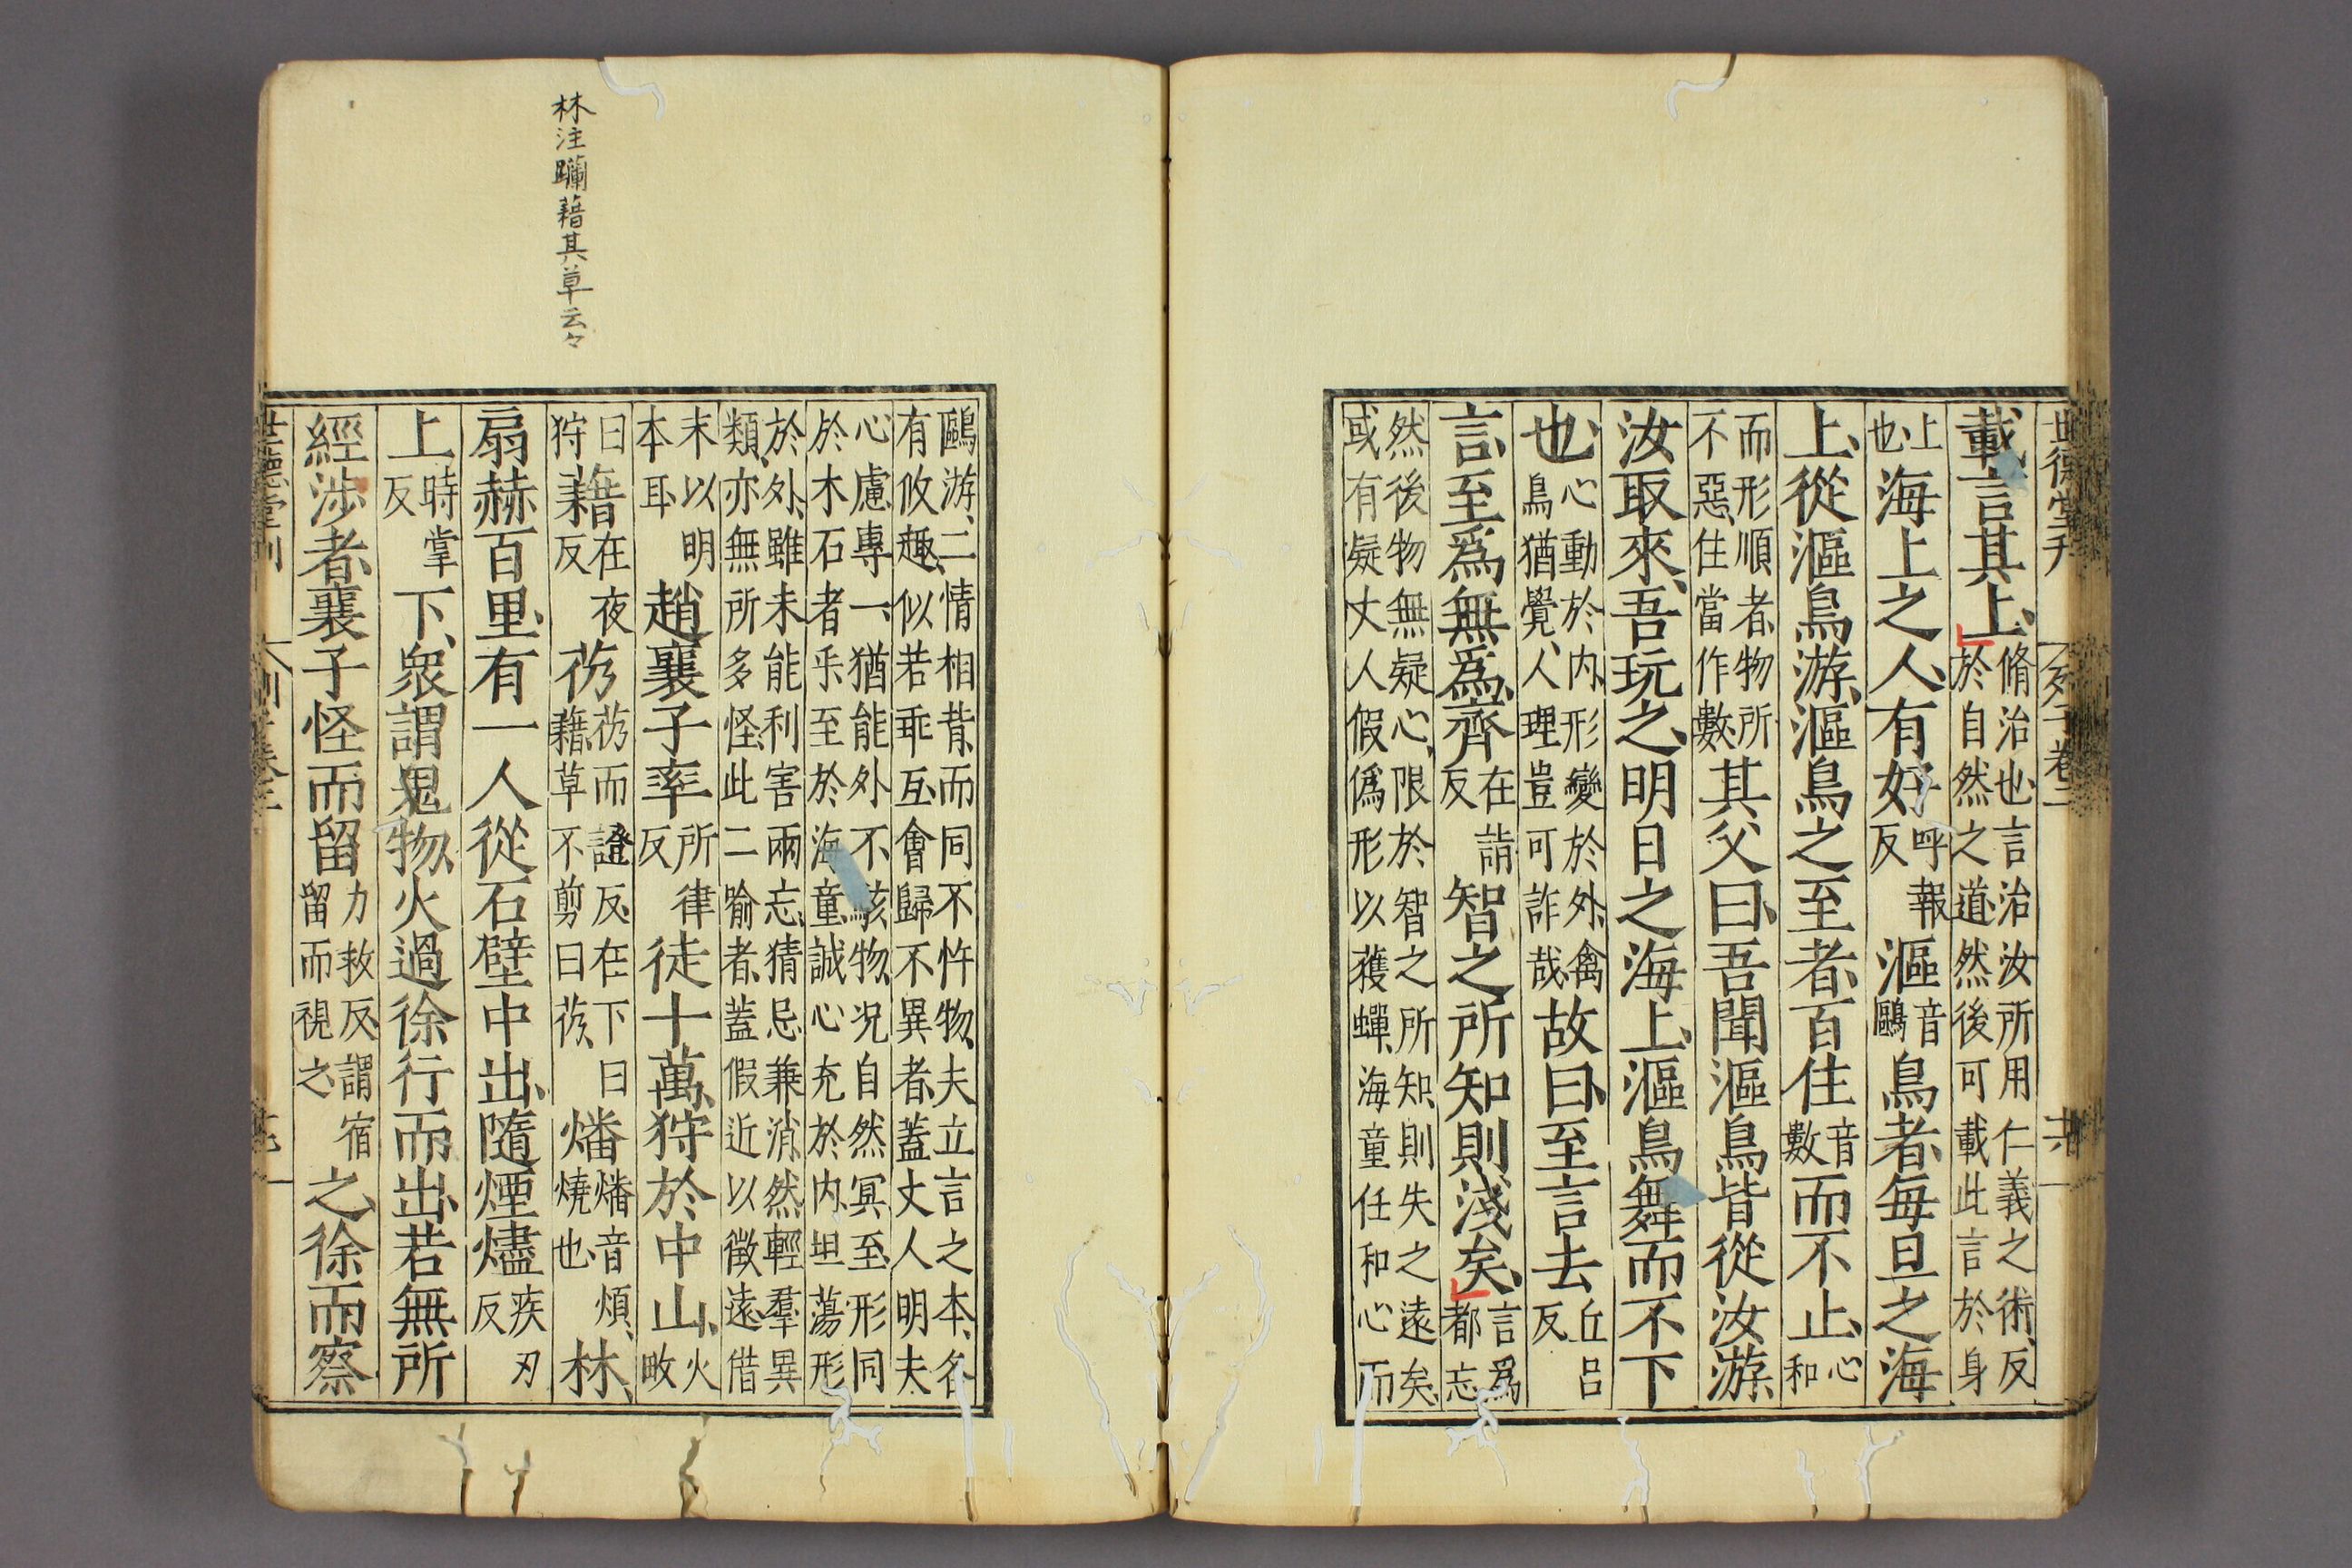 載言其上脩治也言治汝所用仁義之術反於自然之道然後可載此言於身
上也海上之人有好呼報反漚音鷗鳥者每旦之海
上從漚鳥游漚鳥之至者百住音數而不止心和
而形順者物所不惡住當作數其父曰吾聞漚鳥皆從汝游
汝取來吾玩之明日之海上漚鳥舞而不下
也心動於内形變於外禽鳥猶覺人理豈可詐哉故曰至言去丘呂反
言至爲無爲齊在詣反智之所知則淺矣言爲都忘
然後物無疑心限於智之所知則失之遠矣或有疑丈人假僞形以獲蟬海童任和心而
鷗游二情相背而同不忤物夫立言之本各有攸趣似若乖互會歸不異者蓋丈人明夫
心慮專一猶能外不駭物况自然冥至形同於木石者乎至於海童誠心充於内坦蕩形
於外雖未能利害兩忘猜忌兼消然輕羣異類亦無所多怪此二喻者蓋假近以徵遠借
末以明本耳趙襄子率所律反徒十萬狩於中山火畋
曰狩藉在夜反芿芿而證反在下曰藉草不剪曰芿燔燔音煩燒也林
扇赫百里有一人從石壁中出隨煙燼疾刃反
上時掌反下衆謂鬼物火過徐行而出若無所
經涉者襄子怪而留力救反謂宿留而視之之徐而察
林注躪藉其草云々